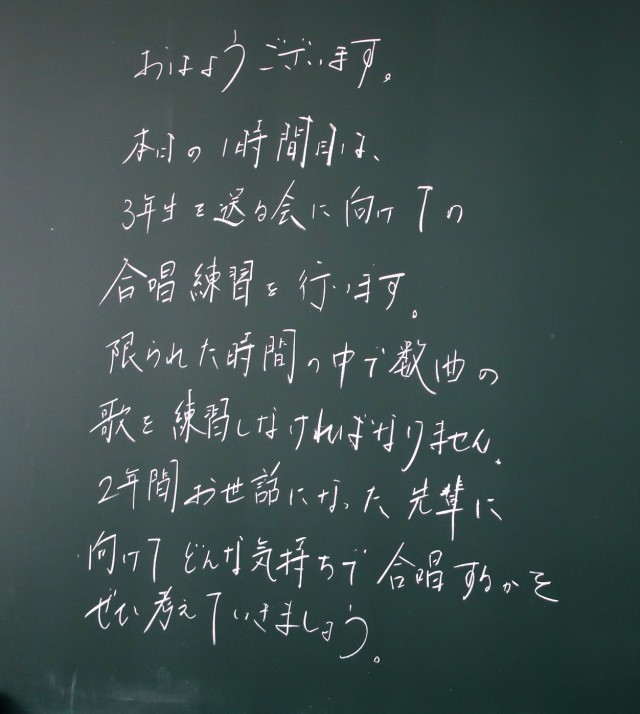 おはようございます。
本日の1時間目は、
3年生を送る会に向けての
合唱練習を行います。
限られた時間の中で数曲の
歌を練習しなければなりません。
2年間お世話になった先輩に
向けてどんな気持ちで合唱するかを
ぜひ考えていきましょう。